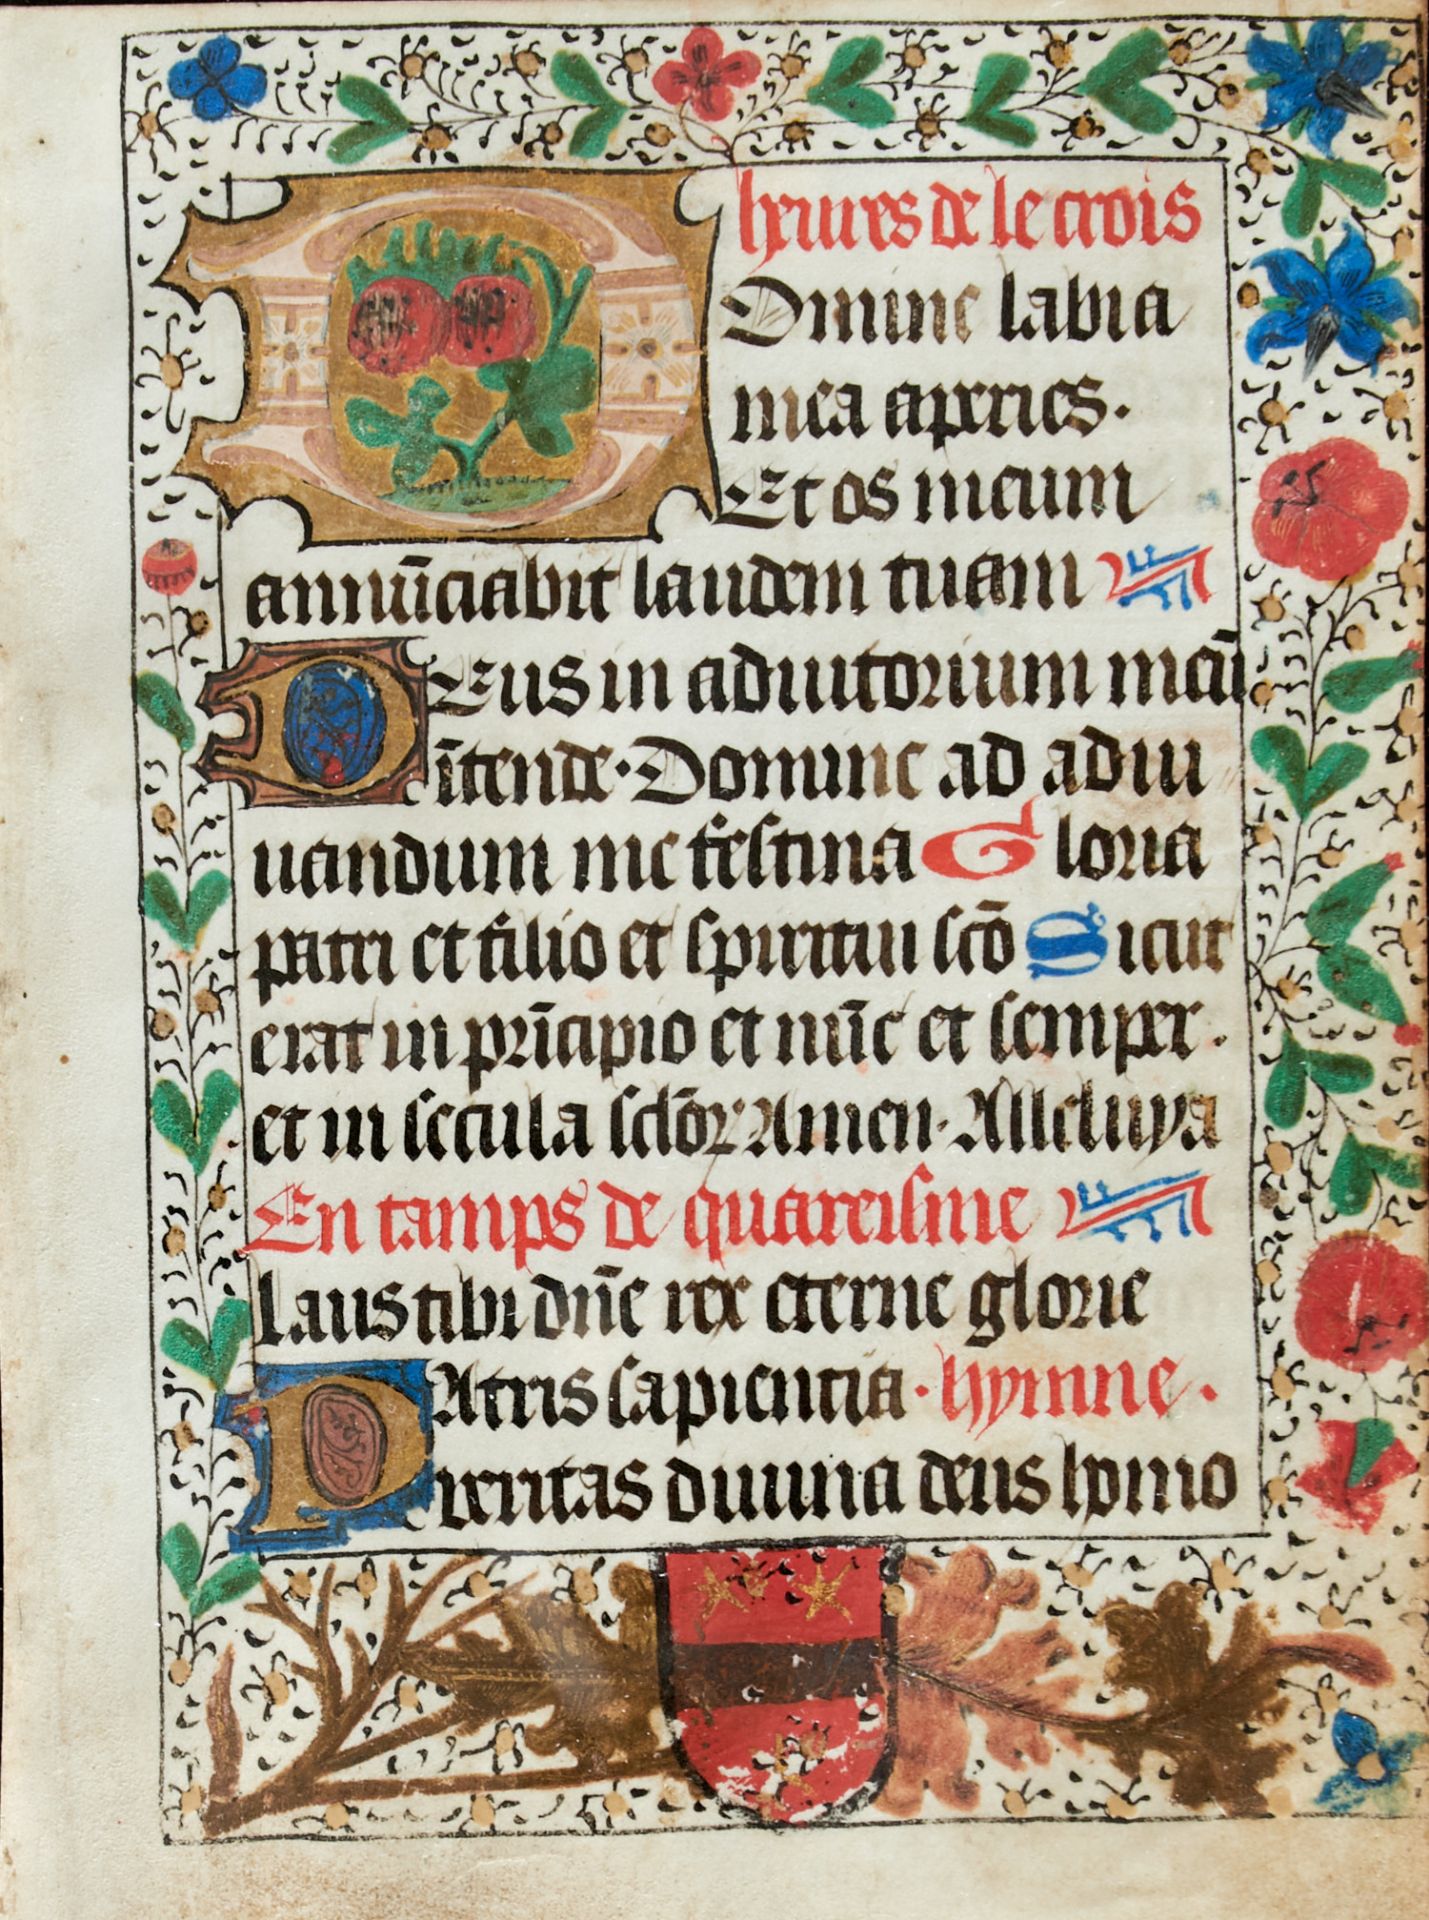 heures de le crois
Domine labia
mea aperies.
Et os meum
annūciabit laudem tuam
Deus in adiutorium meū
ītende. Domine ad adiu
uandum me festina Gloria
patri et filio et spiritui scō Sicut
erat in prīcipio et nūc et semper.
et in secula sclōꝝ Amen. Alleluya
En tamps de quareisme
Laus tibi dn̄e rex eterne glorie
PAtris sapientia. hymne.
ueritas diuina deus homo